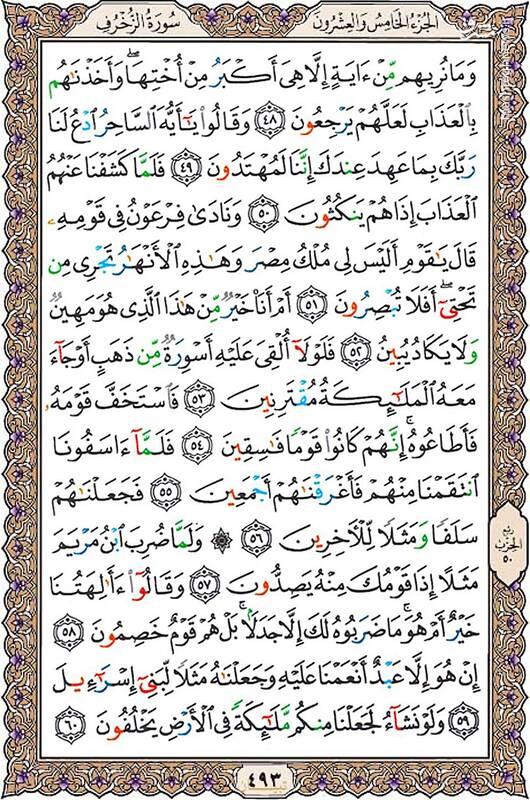 الجزء الخامس والعشرون
سورة الزخرف
وَمَا نُرِيهِم مِّنْ ءَايَةٍ إِلَّا هِىَ أَكْبَرُ مِنْ أُخْتِهَا ۖ وَأَخَذْنَٰهُم
بِٱلْعَذَابِ لَعَلَّهُمْ يَرْجِعُونَ ٤٨ وَقَالُوا۟ يَٰٓأَيُّهَ ٱلسَّاحِرُ ٱدْعُ لَنَا
رَبَّكَ بِمَا عَهِدَ عِندَكَ إِنَّنَا لَمُهْتَدُونَ ٤٩ فَلَمَّا كَشَفْنَا عَنْهُمُ
ٱلْعَذَابَ إِذَا هُمْ يَنكُثُونَ ٥٠ وَنَادَىٰ فِرْعَوْنُ فِى قَوْمِهِۦ
قَالَ يَٰقَوْمِ أَلَيْسَ لِى مُلْكُ مِصْرَ وَهَٰذِهِ ٱلْأَنْهَٰرُ تَجْرِى مِن
تَحْتِىٓ ۖ أَفَلَا تُبْصِرُونَ ٥١ أَمْ أَنَا۠ خَيْرٌ مِّنْ هَٰذَا ٱلَّذِى هُوَ مَهِينٌ
وَلَا يَكَادُ يُبِينُ ٥٢ فَلَوْلَآ أُلْقِىَ عَلَيْهِ أَسْوِرَةٌ مِّن ذَهَبٍ أَوْ جَآءَ
مَعَهُ ٱلْمَلَٰٓئِكَةُ مُقْتَرِنِينَ ٥٣ فَٱسْتَخَفَّ قَوْمَهُۥ
فَأَطَاعُوهُ ۚ إِنَّهُمْ كَانُوا۟ قَوْمًا فَٰسِقِينَ ٥٤ فَلَمَّآ ءَاسَفُونَا
ٱنتَقَمْنَا مِنْهُمْ فَأَغْرَقْنَٰهُمْ أَجْمَعِينَ ٥٥ فَجَعَلْنَٰهُمْ
سَلَفًا وَمَثَلًا لِّلْءَاخِرِينَ ٥٦ ۞ وَلَمَّا ضُرِبَ ٱبْنُ مَرْيَمَ
مَثَلًا إِذَا قَوْمُكَ مِنْهُ يَصِدُّونَ ٥٧ وَقَالُوٓا۟ ءَأَٰلِهَتُنَا
خَيْرٌ أَمْ هُوَ ۚ مَا ضَرَبُوهُ لَكَ إِلَّا جَدَلًۢا ۚ بَلْ هُمْ قَوْمٌ خَصِمُونَ ٥٨
إِنْ هُوَ إِلَّا عَبْدٌ أَنْعَمْنَا عَلَيْهِ وَجَعَلْنَٰهُ مَثَلًا لِّبَنِىٓ إِسْرَٰٓءِيلَ
٥٩ وَلَوْ نَشَآءُ لَجَعَلْنَا مِنكُم مَّلَٰٓئِكَةً فِى ٱلْأَرْضِ يَخْلُفُونَ ٦٠
ربع
الحزب
٥٠
٤٩٣